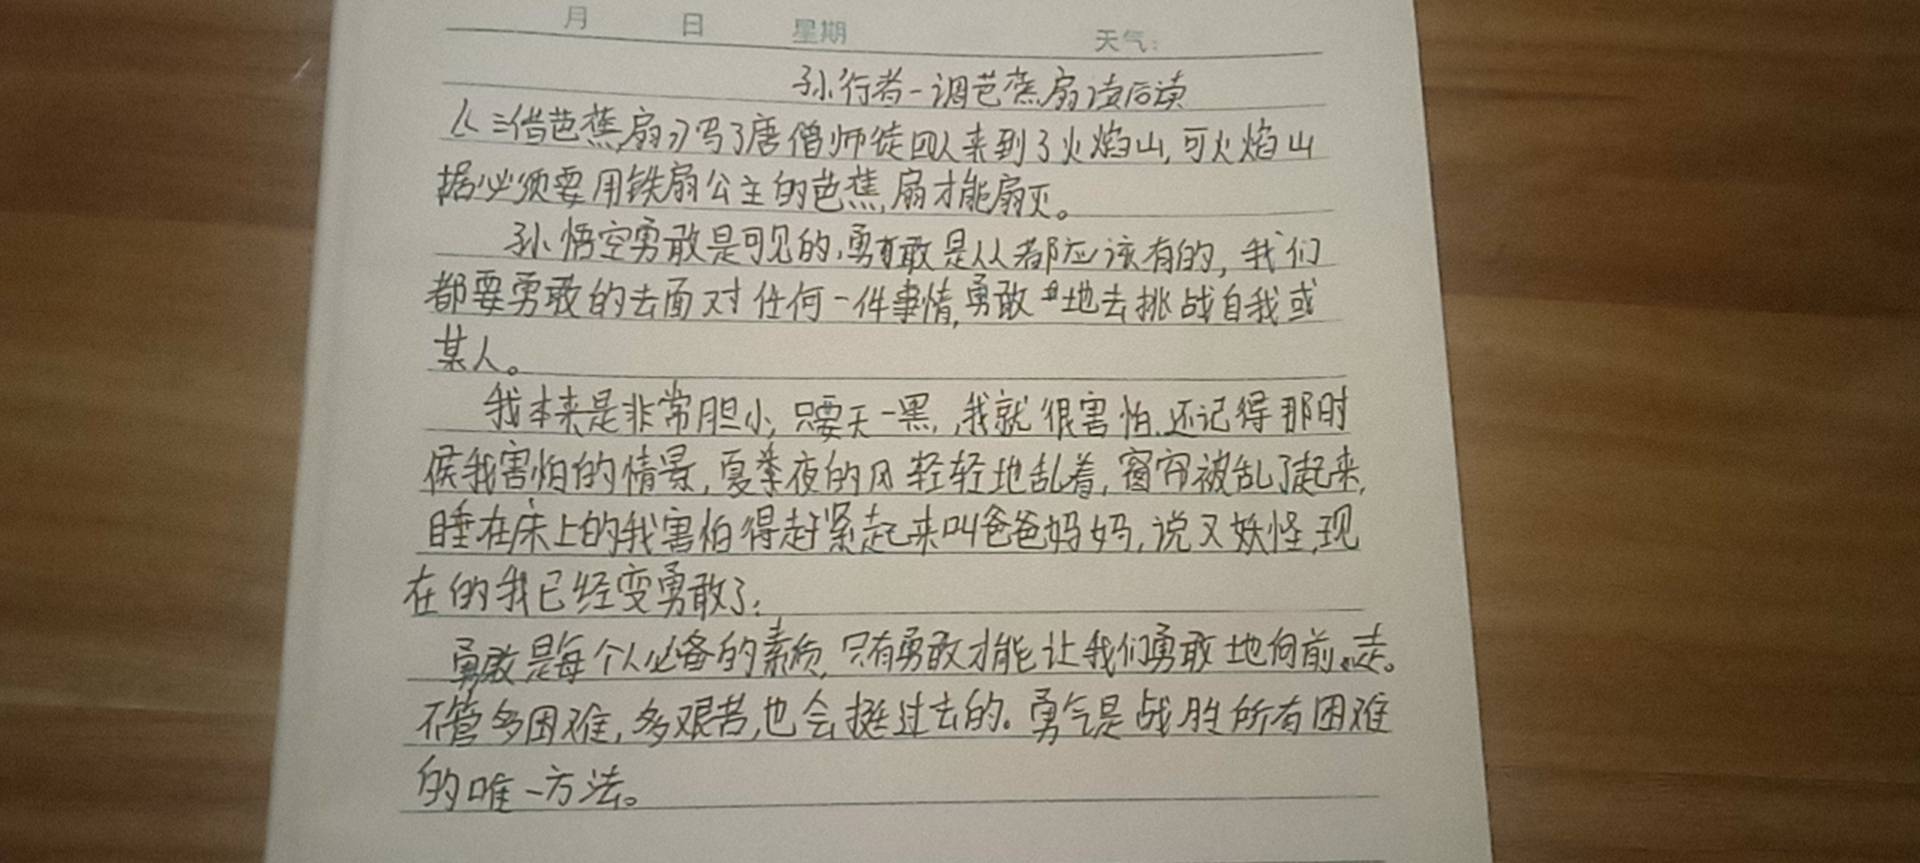 月 日 星期 天气：
孙行者一调芭蕉扇读后读
《三借芭蕉扇》写了唐僧师徒四人来到了火焰山,可火焰山
据必须要用铁扇公主的芭蕉,扇才能扇灭。
孙悟空勇敢是可见的,勇敢是人都应该有的,我们
都要勇敢的去面对任何一件事情,勇敢地去挑战自我或
某人。
我本来是非常胆小,只要天一黑,我就很害怕.还记得那时
候我害怕的情景,夏季夜的风轻轻地乱着,窗帘被乱了起来,
睡在床上的我害怕得赶紧起来叫爸爸妈妈,说又妖怪,现
在的我已经变勇敢了.
勇敢是每个人必备的素质,只有勇敢才能让我们勇敢地向前走。
不管多困难,多艰苦,也会挺过去的.勇气是战胜所有困难
的唯一方法。